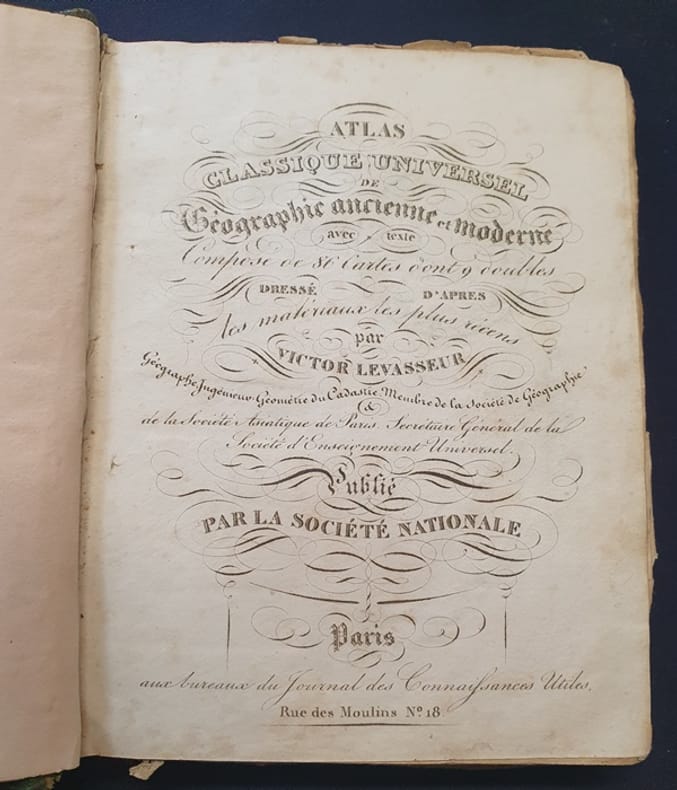 ATLAS
CLASSIQUE UNIVERSEL
DE
Géographie ancienne et moderne
avec texte
Composé de 86 Cartes dont 9 doubles
DRESSÉ D'APRES
les matériaux les plus récens
par
VICTOR LEVASSEUR
Géographe Ingénieur Géomètre du Cadastre Membre de la Société de Géographie
&
de la Société Asiatique de Paris. Secrétaire Général de la
Société d'Enseignement Universel.
Publié
PAR LA SOCIÉTÉ NATIONALE
Paris
aux bureaux du Journal des Connaissances Utiles,
Rue des Moulins Nº 18